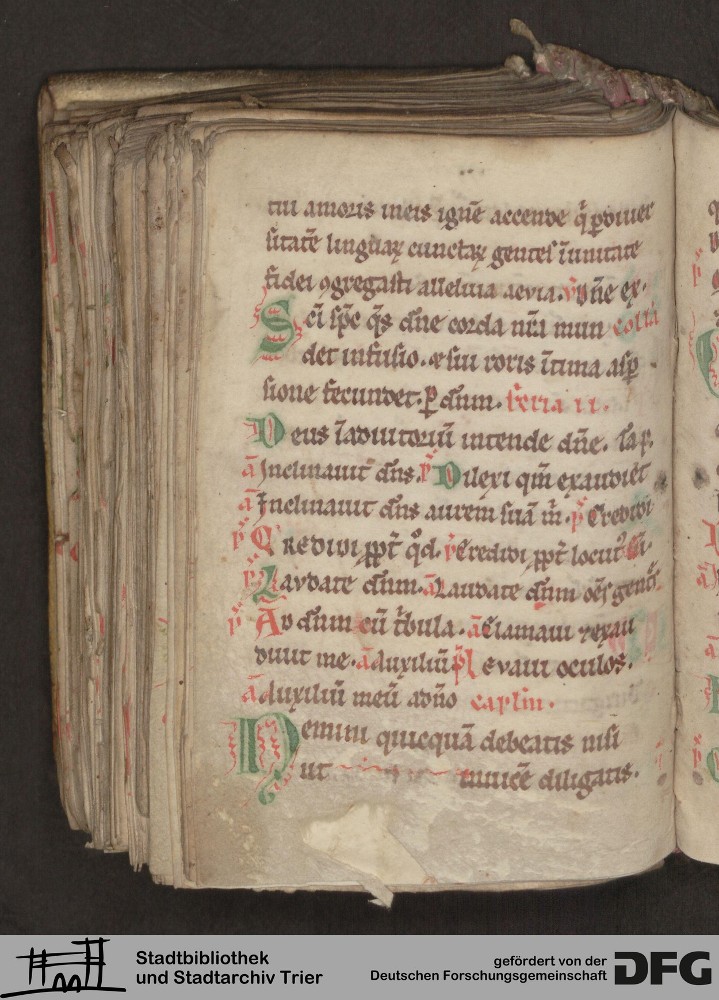 tui amoris in eis ignē accende q̄ p̱ diuer
sitatē linguaꝝ cunctaꝝ gentes ī unitate
fidei ꝯgregasti alleluia aevia. v̄ Dn̄e ex.
Sc̄i sp̄c q̄s dn̄e corda nr̄a mun collā
det infusio. ⁊ sui roris ītima asp̱
sione fecundet. P̱ dn̄m. feria ii.
Deus ī adiutoriū intende dn̄e.
a Inclinauit dn̄s. p̄ Dilexi qm̄ exaudiet
a Inclinauit dn̄s aurem suā m̄. p̄ Credidi
p̄ Credidi ꝓpt̄ qd̄. a Credidi ꝓpt̄ locut᷒
p̄ Laudate dn̄m. a Laudate dn̄m oēs gentes
p̄ Ad dn̄m cū t̄bula. a Clamaui ⁊ exau
diuit me. a Auxiliū p̄ Leuaui oculos.
a Auxiliū meū a dn̄o caplm̄.
Nemini quicquā debeatis nisi
ut inuicē diligatis.
Stadtbibliothek
und Stadtarchiv Trier
gefördert von der
Deutschen Forschungsgemeinschaft
DFG